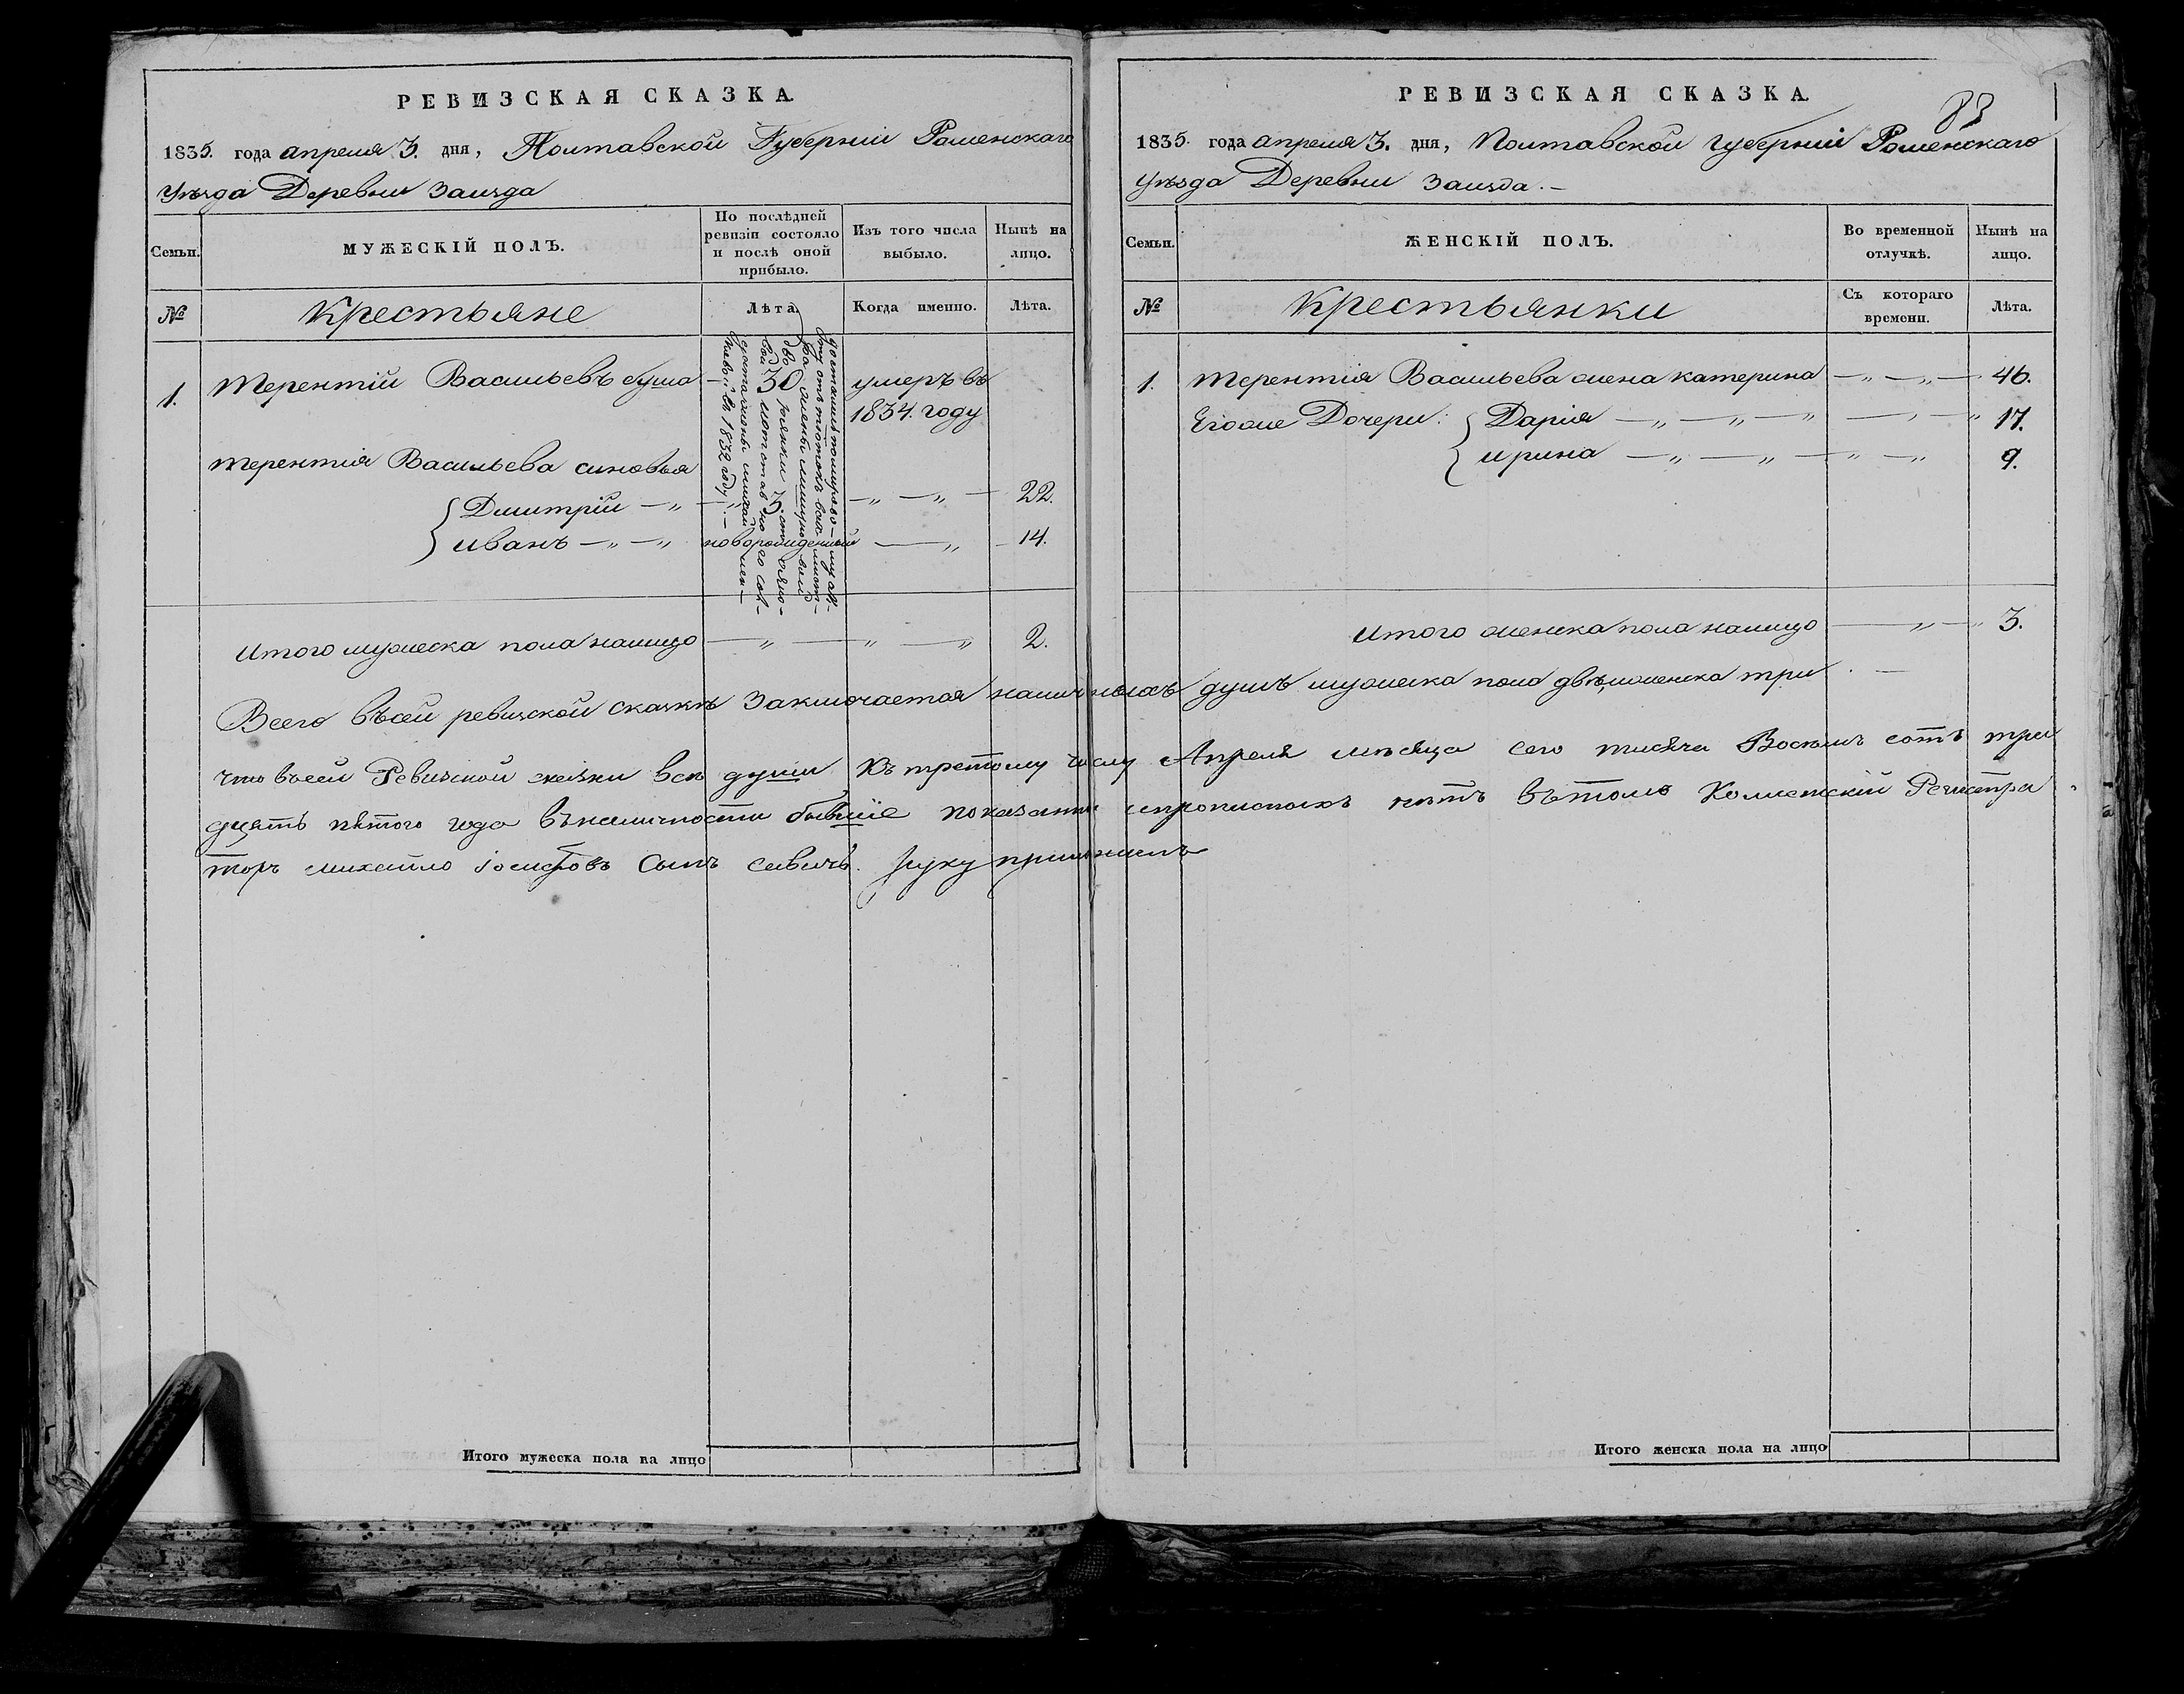 РЕВИЗСКАЯ СКАЗКА.
1835. года апреля 3. дня, Полтавской Губерніи Роменскаго
уѣзда Деревни Заизда
Семьи.
МУЖЕСКІЙ ПОЛЪ.
По послѣдней ревизіи состояло и послѣ оной прибыло.
Изъ того числа выбыло.
Нынѣ на лицо.
№
Крестьяне
Лѣта.
Когда именно.
Лѣта.
1. Терентій Васильевъ — 30 умеръ въ
1834. году
Терентія Васильева синовья
Димитрій — „ — „ 3. — „ — „ — 22.
Иванъ — „ — „ новорожденный — „ — 14.
въ 1832 году. —
Итого мужеска пола налицо — „ — „ — „ 2.
РЕВИЗСКАЯ СКАЗКА.
83
1835. года апреля 3. дня, Полтавской Губерніи Роменскаго
уѣзда Деревни Заизда. —
Семьи.
ЖЕНСКІЙ ПОЛЪ.
Во временной отлучкѣ.
Нынѣ на лицо.
№
Крестьянки
Съ котораго времени.
Лѣта.
1. Терентія Васильева жена катерина — „ — „ — 46.
Егоже Дочери: Дарія — „ — „ — „ — „ — „ 17.
Ирина — „ — „ — „ — „ 9.
Итого женска пола налицо — „ — „ 3.
Всего въсей ревизской сказкѣ Заключается наличныхъ душъ мужеска пола двѣ, иженска три. —
Что въсей Ревизской сказки всѣ души къ третому числу Апреля мѣсяца сего тисяча Восемъ сотъ три
дцять пятого года въналичности бывшіе показани ипрописныхъ нѣтъ вътомъ Колежскій Регистра
торъ михайло іосифовъ Сынъ савичъ. руку приложилъ
Итого мужеска пола на лицо
Итого женска пола на лицо